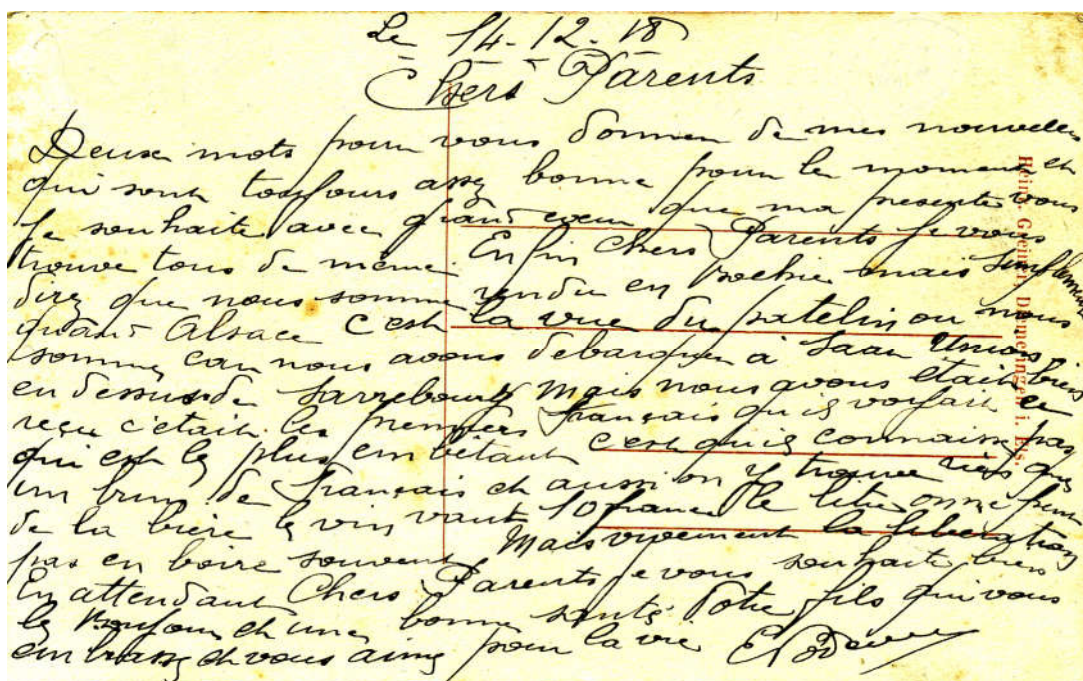 Le 14-12-18
Chers Parents
Deux mots pour vous donner de mes nouvelles
qui sont toujours assez bonne pour le moment et
je souhaite avec grand cœur que ma presente vous
trouve tous de même. Enfin Chers Parents je vous
direz que nous somme rendu en Bochie mais simplement
quand Alsace c'est la vue du patelin ou nous
somme car nous avons debarquer à Saar Union
en dessus de Sarrebourg mais nous avons était bien
reçu c'était les premiers français qu'is voyait ce
qui est le plus embêtant c'est qu'is connaisse pas
un brun de français et aussi on y trouve rien que
de la bière le vin vaut 10 franc le litre on ne peut
pas en boire souvent Mais vivement la libération
En attendant Chers Parents je vous souhaite bien
le bonjour et une bonne santé. Votre fils qui vous
embrasse et vous aime pour la vie
Heinr. Greiner, Diemeringen i. Els.